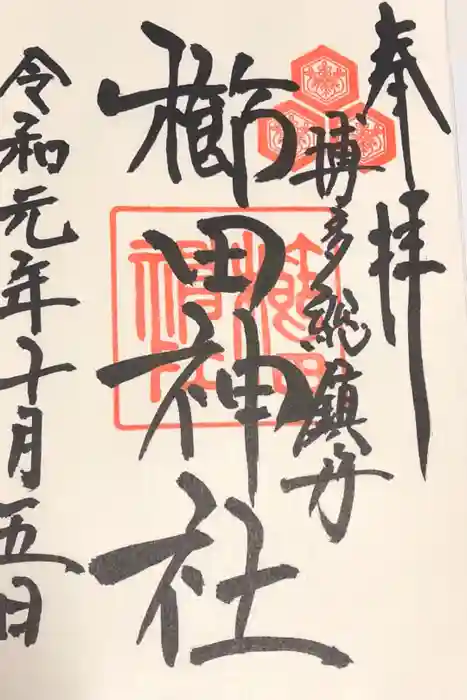 奉拝
博多総鎮守
櫛田神社
令和元年十月五日
櫛田
神社